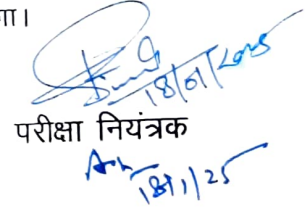 गा।
18/01/2025
परीक्षा नियंत्रक
18/1/25